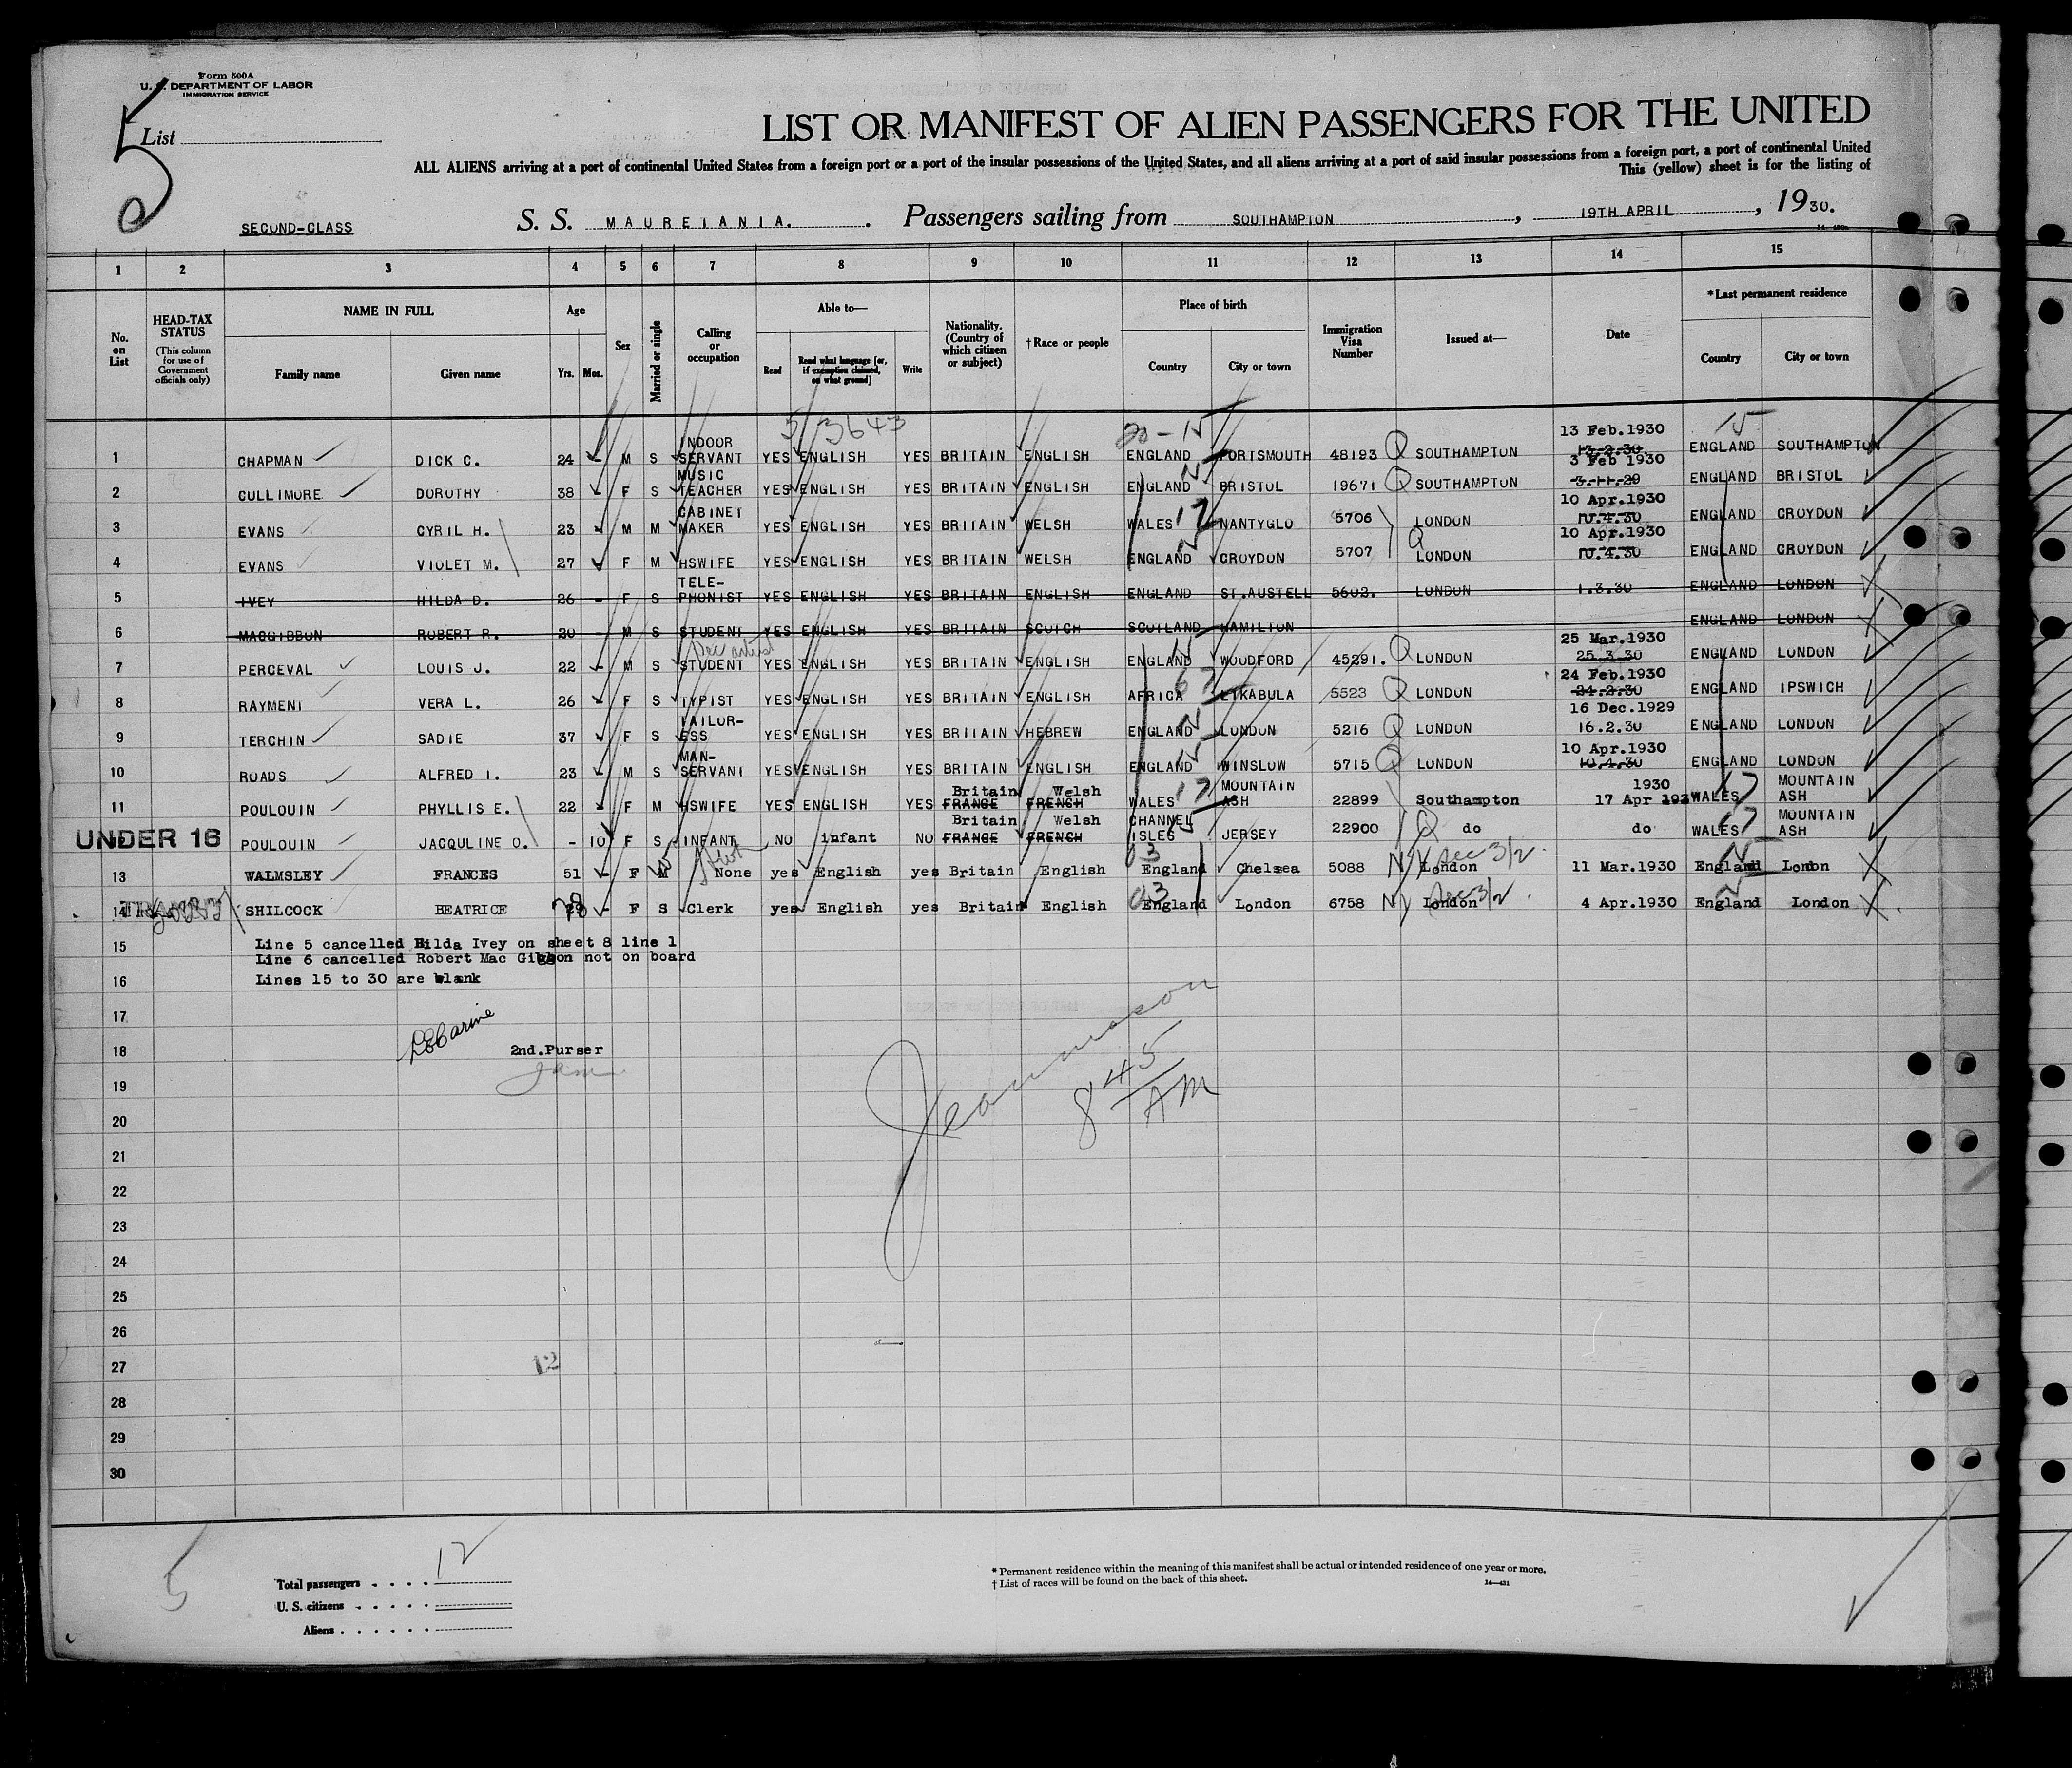 Form 500A
U. S. DEPARTMENT OF LABOR
IMMIGRATION SERVICE
5
List
LIST OR MANIFEST OF ALIEN PASSENGERS FOR THE UNITED
ALL ALIENS arriving at a port of continental United States from a foreign port or a port of the insular possessions of the United States, and all aliens arriving at a port of said insular possessions from a foreign port, a port of continental United
This (yellow) sheet is for the listing of
SECOND-CLASS S. S. MAURETANIA. Passengers sailing from SOUTHAMPTON, 19TH APRIL, 1930.
1 2 3 4 5 6 7 8 9 10 11 12 13 14 15
No. on List
HEAD-TAX STATUS (This column for use of Government officials only)
NAME IN FULL Family name Given name
Age Yrs. Mos.
Sex
Married or single
Calling or occupation
Able to— Read Read what language [or, if exemption claimed, on what ground] Write
Nationality. (Country of which citizen or subject)
†Race or people
Place of birth Country City or town
Immigration Visa Number
Issued at—
Date
*Last permanent residence Country City or town
5 3643 20-15 15
1 CHAPMAN DICK C. 24 - M S INDOOR SERVANT YES ENGLISH YES BRITAIN ENGLISH ENGLAND PORTSMOUTH 48193 Q SOUTHAMPTON 13 Feb.1930 13.2.30 ENGLAND SOUTHAMPTON
2 CULLIMORE DOROTHY 38 - F S MUSIC TEACHER YES ENGLISH YES BRITAIN ENGLISH ENGLAND BRISTOL 19671 Q SOUTHAMPTON 3 Feb 1930 3.11.29 ENGLAND BRISTOL
3 EVANS CYRIL H. 23 M M CABINET MAKER YES ENGLISH YES BRITAIN WELSH WALES 17 NANTYGLO 5706 LONDON 10 Apr.1930 10.4.30 ENGLAND CROYDON
4 EVANS VIOLET M. 27 F M HSWIFE YES ENGLISH YES BRITAIN WELSH ENGLAND CROYDON 5707 Q LONDON 10 Apr.1930 10.4.30 ENGLAND CROYDON
5 IVEY HILDA D. 26 - F S TELE-PHONIST YES ENGLISH YES BRITAIN ENGLISH ENGLAND ST.AUSTELL 5602. LONDON 1.3.30 ENGLAND LONDON
6 MACGIBBON ROBERT R. 20 - M S STUDENT YES ENGLISH YES BRITAIN SCOTCH SCOTLAND HAMILTON ENGLAND LONDON
7 PERCEVAL LOUIS J. 22 - M S STUDENT YES ENGLISH YES BRITAIN ENGLISH ENGLAND WOODFORD 45291. Q LONDON 25 Mar.1930 25.3.30 ENGLAND LONDON
8 RAYMENT VERA L. 26 F S TYPIST YES ENGLISH YES BRITAIN ENGLISH AFRICA 5523 Q LONDON 24 Feb.1930 24.2.30 ENGLAND IPSWICH
9 TERCHIN SADIE 37 F S TAILOR-ESS YES ENGLISH YES BRITAIN HEBREW ENGLAND LONDON 5216 Q LONDON 16 Dec.1929 16.2.30 ENGLAND LONDON
10 ROADS ALFRED T. 23 - M S MAN-SERVANT YES ENGLISH YES BRITAIN ENGLISH ENGLAND WINSLOW 5715 Q LONDON 10 Apr.1930 10.4.30 ENGLAND LONDON
11 POULOUIN PHYLLIS E. 22 F M HSWIFE YES ENGLISH YES Britain FRANCE Welsh FRENCH WALES 17 MOUNTAIN ASH 22899 Southampton 1930 17 Apr WALES 17 MOUNTAIN ASH
UNDER 16 POULOUIN JACQULINE O. - 10 F S INFANT NO infant NO Britain FRANCE Welsh FRENCH CHANNEL ISLES JERSEY 22900 Q do do WALES 17 MOUNTAIN ASH
13 WALMSLEY FRANCES 51 - F M None yes English yes Britain English 03 England Chelsea 5088 N London Sec 3/2. 11 Mar.1930 England London
14 TRANSIT SHILCOCK BEATRICE 28 - F S Clerk yes English yes Britain English 03 England London 6758 N London Sec 3/2. 4 Apr.1930 England London
15 Line 5 cancelled Hilda Ivey on sheet 8 line 1
Line 6 cancelled Robert Mac Gibbon not on board
16 Lines 15 to 30 are blank
17
18 2nd.Purser
19
20
21
22
23
24
25
26
27
28
29
30
8 45 AM
12
5
Total passengers . . . . 12
U. S. citizens . . . . .
Aliens . . . . . .
* Permanent residence within the meaning of this manifest shall be actual or intended residence of one year or more.
† List of races will be found on the back of this sheet.
14—421